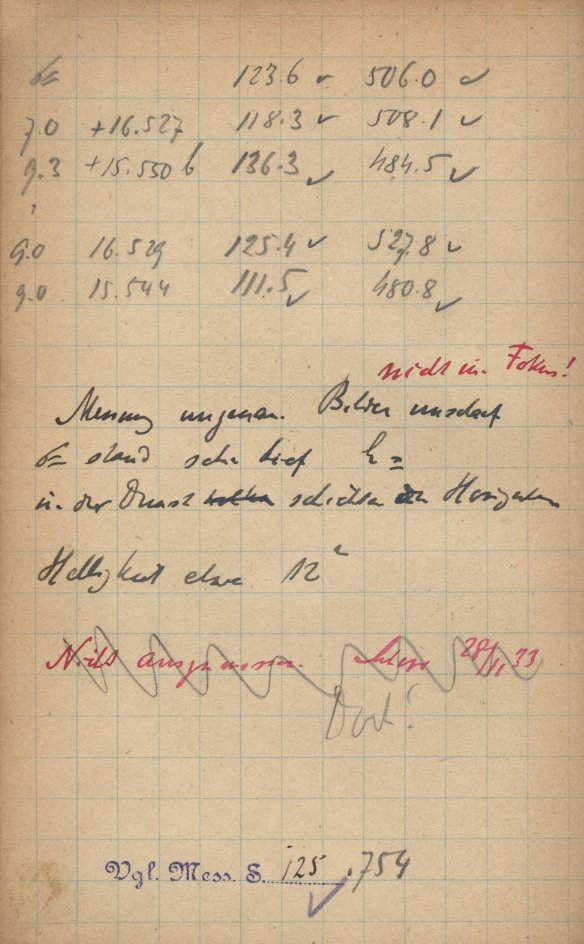 123.6 ✓ 506.0 ✓
7.0 +16.527 118.3 ✓ 508.1 ✓
9.3 +15.550 b 136.3 ✓ 484.5 ✓
9.0 16.529 125.4 ✓ 527.8 ✓
9.0 15.544 111.5 ✓ 480.8 ✓
nicht im Fokus!
Messung ungenau. Bilder unscharf
stand sehr tief h =
in der Dunst schichten Horizonten
Helligkeit etwa 12
Nicht ausgemessen. 28/11 33
Doch!
Vgl. Mess. S. 125 . 754 ✓